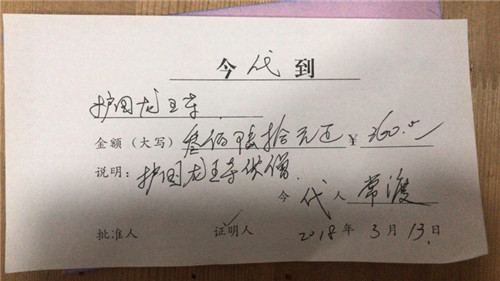 今代到
护国龙王寺
金额（大写）叁佰陆拾元正 ¥ 360.00
说明：护国龙王寺供僧
今代人 常渡
批准人 证明人 2018年3月13日